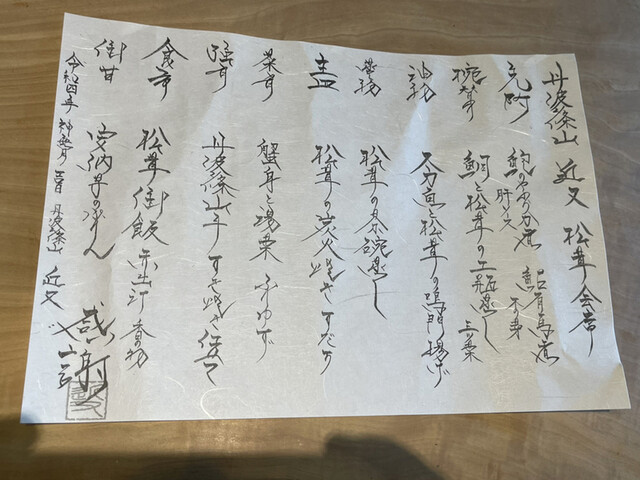 丹波篠山 近又 松茸会席
先附 鮑の
肝ソース
椀 鯛と松茸の土瓶蒸し 三つ葉
油物 太刀魚と松茸の鳴門揚げ
蒸物 松茸の茶碗蒸し
松茸の炭火焼き すだち
菜 蟹身と湯葉 ふゆず
強肴 丹波篠山牛 すき焼き仕立て
食事 松茸御飯 赤出汁 香の物
御甘 安納芋のぷりん
令和四年 神無月 丹波篠山 近又
感謝